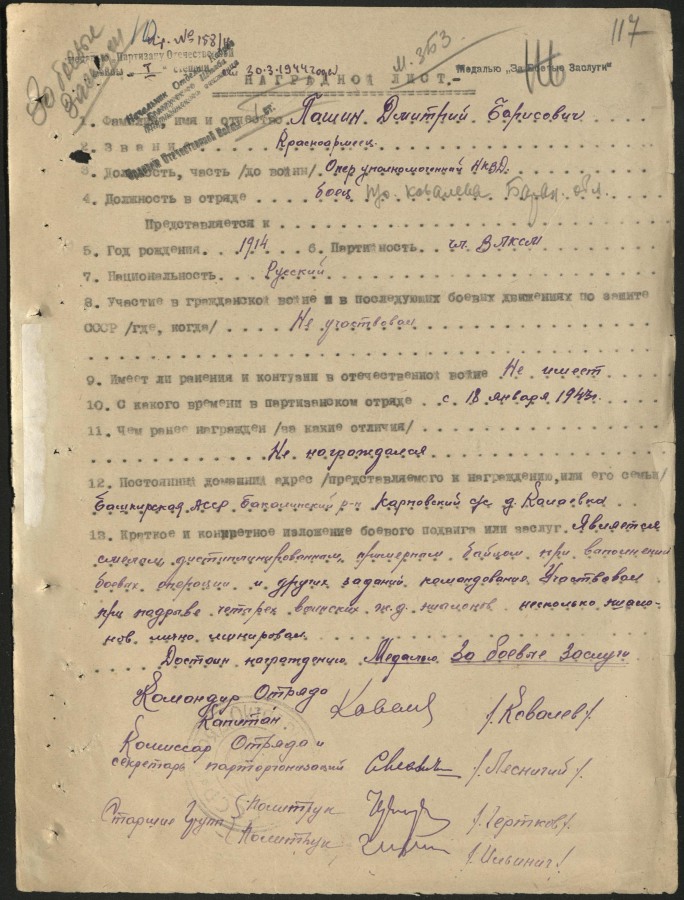 За боевые
заслуги
Пр. № 158/н
117
Партизану Отечественной
I степени 20.3.1944 года
Медалью „За Боевые Заслуги"
НАГРАДНОЙ ЛИСТ.
1. Фамилия, имя и отчество Пашин Дмитрий Борисович
2. Звание Красноармеец
3. Должность, часть /до войны/ Опер уполномоченный НКВД
4. Должность в отряде боец
Представляется к
5. Год рождения 1914 6. Партийность чл. ВЛКСМ
7. Национальность Русский
8. Участие в гражданской войне и в последующих боевых движениях по защите
СССР /где, когда/ Не участвовал
9. Имеет ли ранения и контузии в отечественной войне Не имеет
10. С какого времени в партизанском отряде с 18 января 1943г.
11. Чем ранее награжден /за какие отличия/
Не награждался
12. Постоянный домашний адрес /представляемого к награждению, или его семьи/
Башкирская АССР Бакалинский р-н Карповский с/с д.
13. Краткое и конкретное изложение боевого подвига или заслуг. Является
смелым, дисциплинированным, примерным бойцом при выполнении
боевых операций и других заданий командования. Участвовал
при подрыве четырех воинских ж.д. эшелонов, несколько эшело-
нов лично минировал.
Достоин награждению Медалью За боевые заслуги
Командир Отряда
Капитан /Ковалев/
Комиссар Отряда и
секретарь парторганизаций /Лесничий/
Старшие Групп (Политрук /Чертков/
(Политрук /Ильинич/